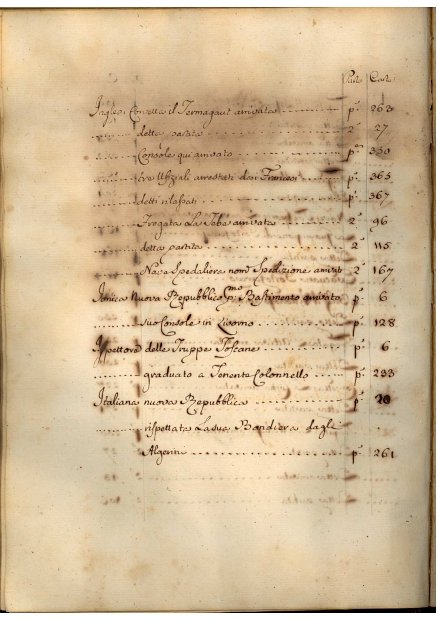 Parte Carte
Inglesi Corvetta il Termagaut arrivata p.ª 263
detta partita 2.ª 27
Console qui arrivato p.ª 350
tre Uffiziali arrestati dai Francesi p.ª 365
detti rilasciati p.ª 367
Fregata La Tebe arrivata 2.ª 96
detta partita 2.ª 115
Nave Spedaliera nom.ª Spedizione arrivat 2.ª 167
Ionica Nuova Repubblica p.mo Bastimento arrivato p.ª 6
suo Console in Livorno p.ª 128
Ispettore delle Truppe Toscane p.ª 6
graduato a Tenente Colonnello p.ª 293
Italiana nuova Repubblica p.ª 20
rispettata La sua Bandiera dagli
Algerini p.ª 261